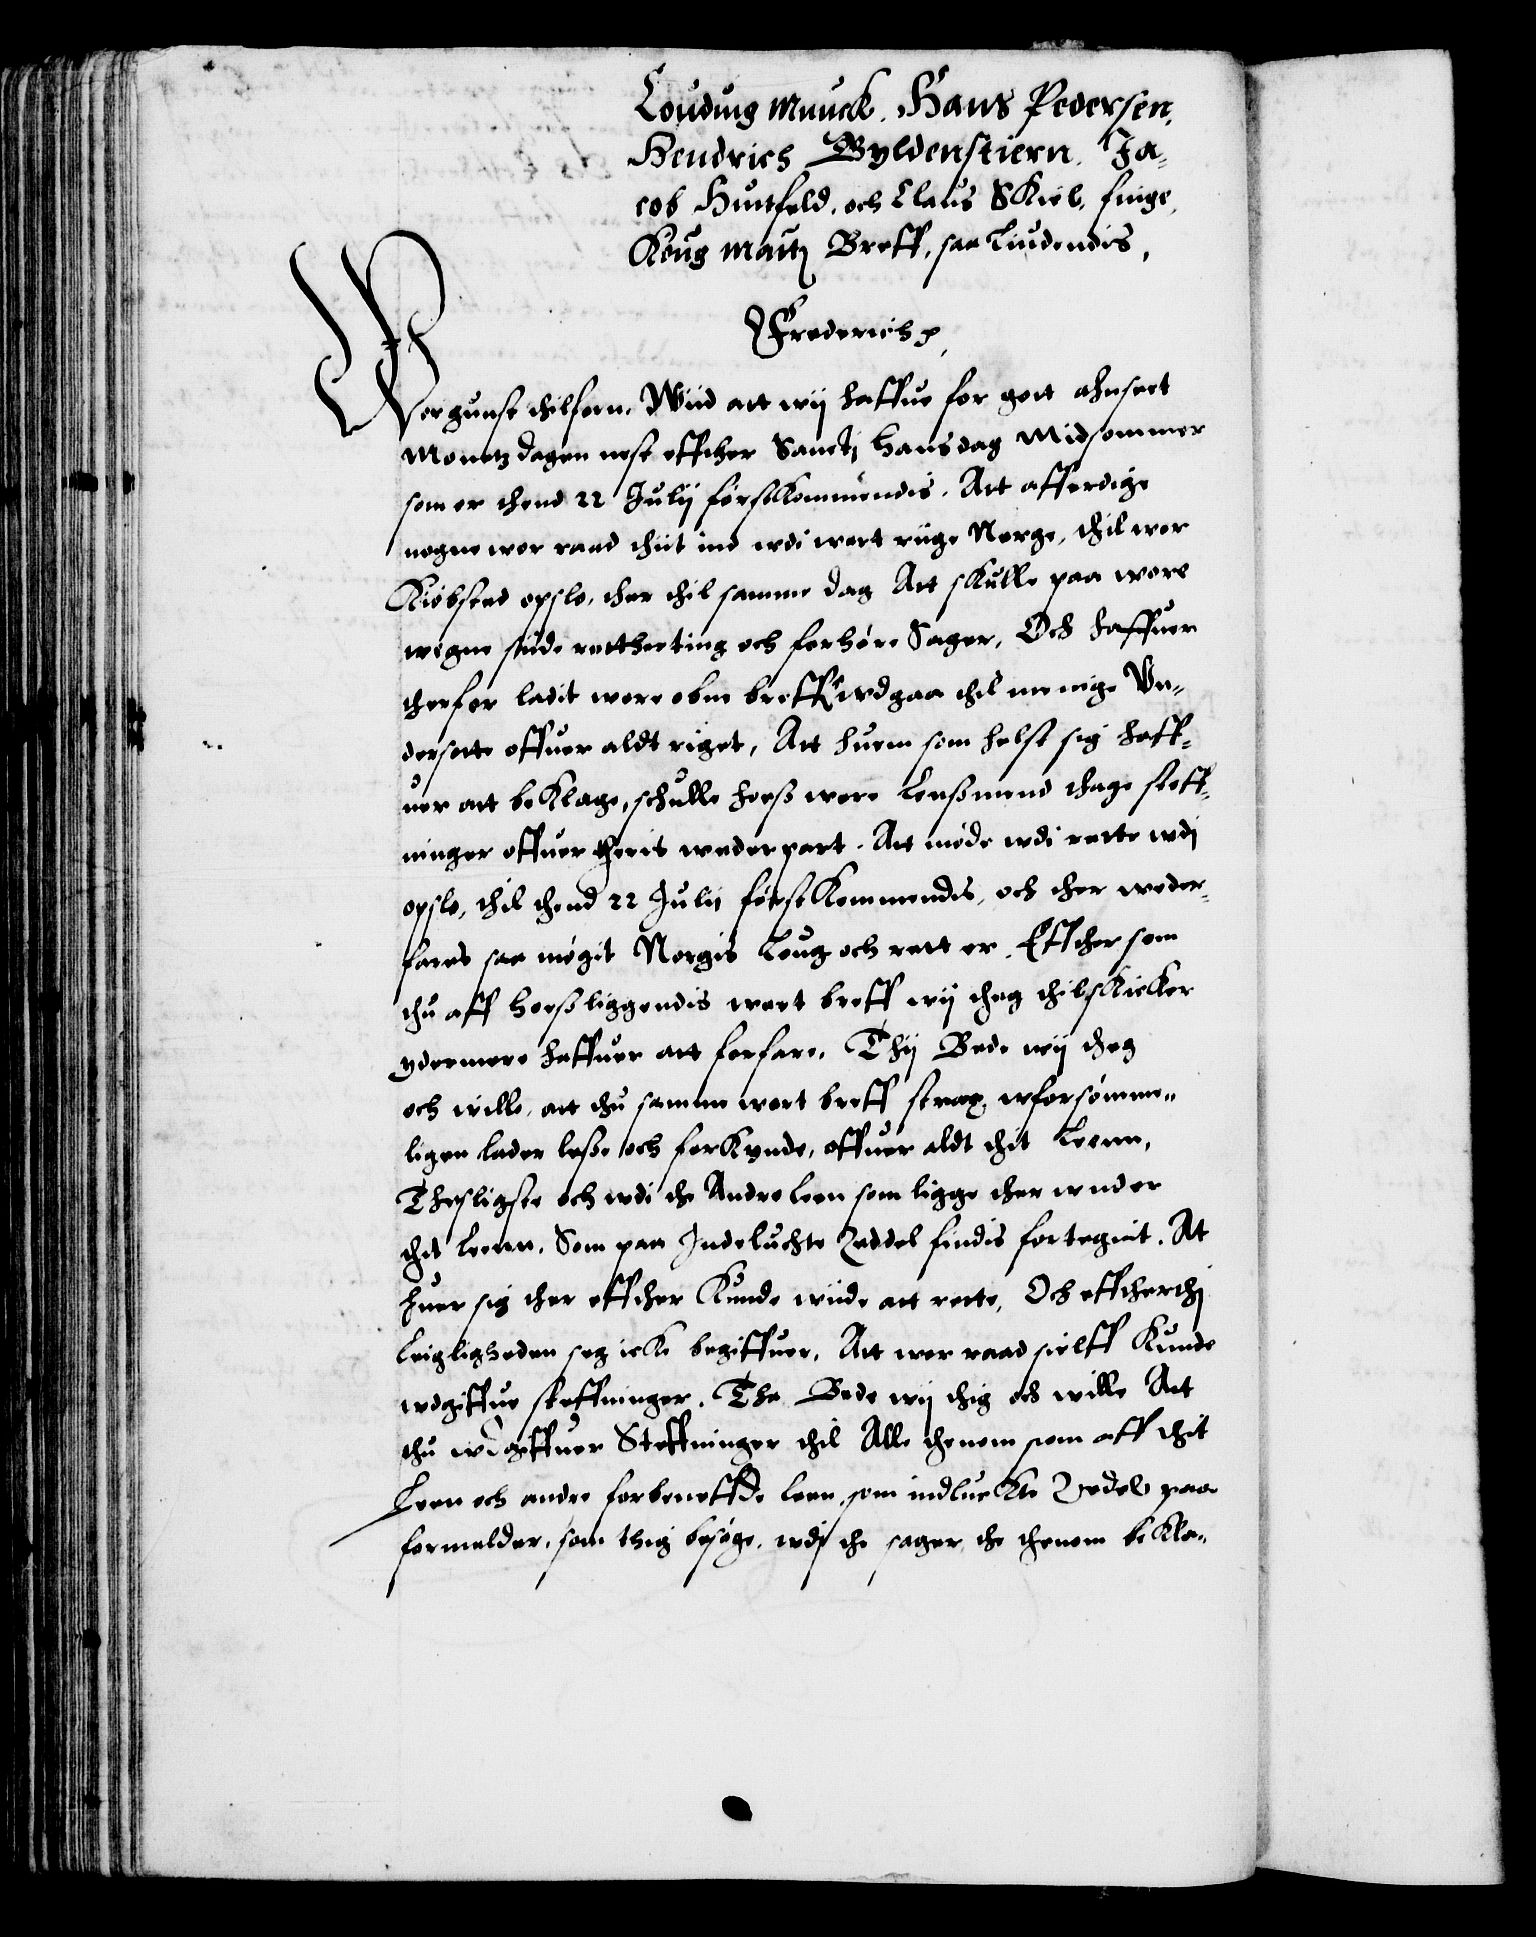 Louduig Munck. Hans Pedersen.
Hendrich Gyldenstiern. Ja-
cob Huitfeld. och Claus Skiel, finge,
Kong Maitz Breff, saa liudendis,
Frederich p,
Wor gunst thilforn, Wiid att wij haffue for gott ahnseet
Monetz dagen nest effther Sancti Hans dag Midsommer
som er thend 22 Julij førstkommendis. Att afferdige
nogne wor raad thiit ind wdi wort riige Norge, thil wor
Kiøbsted opslo, ther thil samme dag Att skulle paa wore
wegne siide retterting och forhøre Sager, Och haffuer
therfor ladit wore obne breff wdgaa thil menige Vn-
dersotte offuer aldt riget, Att huem som helst sig haff-
uer att beklage, schulle hoess wore Lenssmend thage steff-
ninger offuer theris wederpart. Att møde wdi rette wdj
opslo, thil thend 22 Julij førstkommendis, och ther weder-
fares saa møgit Norgis Loug och rett er. Effther som
thu aff hoessliggendis wort breff wij theg thilskicker
ydermere haffuer att forfare. Thij Bede wij theg
och wille, att thu samme wort breff strax wforsømme-
ligen lader lesse och forkynde, offuer aldt thit Leenn,
Thesligste och wdi the Andre leen som ligge ther wnder
thit leenn. Som paa Indeluchte Zeddel findis forteignit. At
huer sig ther effther kunde wiide att rette, Och efftherthj
leigligheden seg icke begiffuer, Att wor raad sielff kunde
wdgiffue steffninger. Tha Bede wij thig och wille Att
thu wdgiffuer Steffninger thil Alle thenom som aff thit
Leen och andre forbeneffde leen, som indluckte Zedel paa
formelder, som thig besøge, wdj the sager, the thenom bekla-